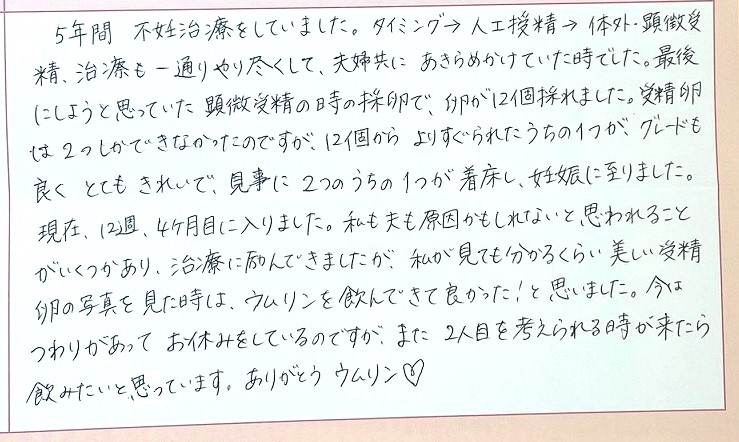 5年間 不妊治療をしていました。タイミング→人工授精→体外・顕微受
精、治療も一通りやり尽くして、夫婦共に あきらめかけていた時でした。最後
にしようと思っていた 顕微受精の時の採卵で、卵が12個採れました。受精卵
は2つしかできなかったのですが、12個から よりすぐられたうちの1つが、グレードも
良く とても きれいで、見事に 2つのうちの1つが着床し、妊娠に至りました。
現在、12週、4ヶ月目に入りました。私も夫も原因かもしれないと思われること
がいくつかあり、治療に励んできましたが、私が見ても分かるくらい美しい受精
卵の写真を見た時は、ウムリンを飲んできて良かった!と思いました。今は
つわりがあって お休みをしているのですが、また 2人目を考えられる時が来たら
飲みたいと思っています。ありがとう ウムリン♡